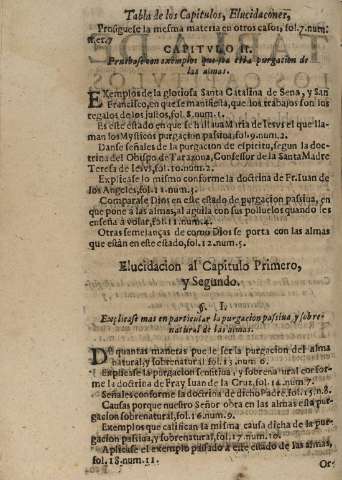 Tabla de los Capitulos, Elucidaciones,
Prosiguese la mesma materia en otros casos, fol.7.num.
6.et.7
CAPITVLO II.
Pruebase con exemplos que sea esta purgacion de
las almas.
EXemplos de la gloriosa Santa Catalina de Sena, y San
Francisco, en que se manifiesta, que los trabajos son los
regalos de los justos, fol.8.num.1.
Es este estado en que se halla una Maria de Iesvs el que lla-
man los Mysticos purgacion passiva, fol.9.num.2.
Danse señales de la purgacion de espiritu, segun la doc-
trina del Obispo de Tarazona, Confessor de la Santa Madre
Teresa de Iesvs, fol.10.num.
Explicase lo mismo conforme la doctrina de Fr. Iuan de
los Angeles, fol.11.num.3.
Comparase Dios en este estado de purgacion passiua, en
que pone a las almas, al aguila con sus polluelos quando les
enseña a volar, fol.11.num.4.
Otras semejanças de como Dios se porta con las almas
que están en este estado, fol.12.num.5.
Elucidacion al Capitulo Primero,
y Segundo.
§. I.
Explicase mas en particular la purgacion passiua y sobre-
natural de las almas.
DE quantas maneras puede ser la purgacion del alma
natural, y sobrenatural fol.13.num.6.
Explicase la purgacion sensitiva, y sobrenatural confor-
me la doctrina de Fray Iuan de la Cruz, fol.14.num.7.
Señales conforme la doctrina de dicho Padre, fol.15.n.8.
Causas porque nuestro Señor obra en las almas esta pur-
gacion sobrenatural, fol.16.num.9.
Exemplos que califican la misma causa dicha de la pur-
gacion passiva, y sobrenatural, fol.17.num.10.
Aplicase el exemplo passado a este estado de las almas,
fol.18.num.11.
Or-